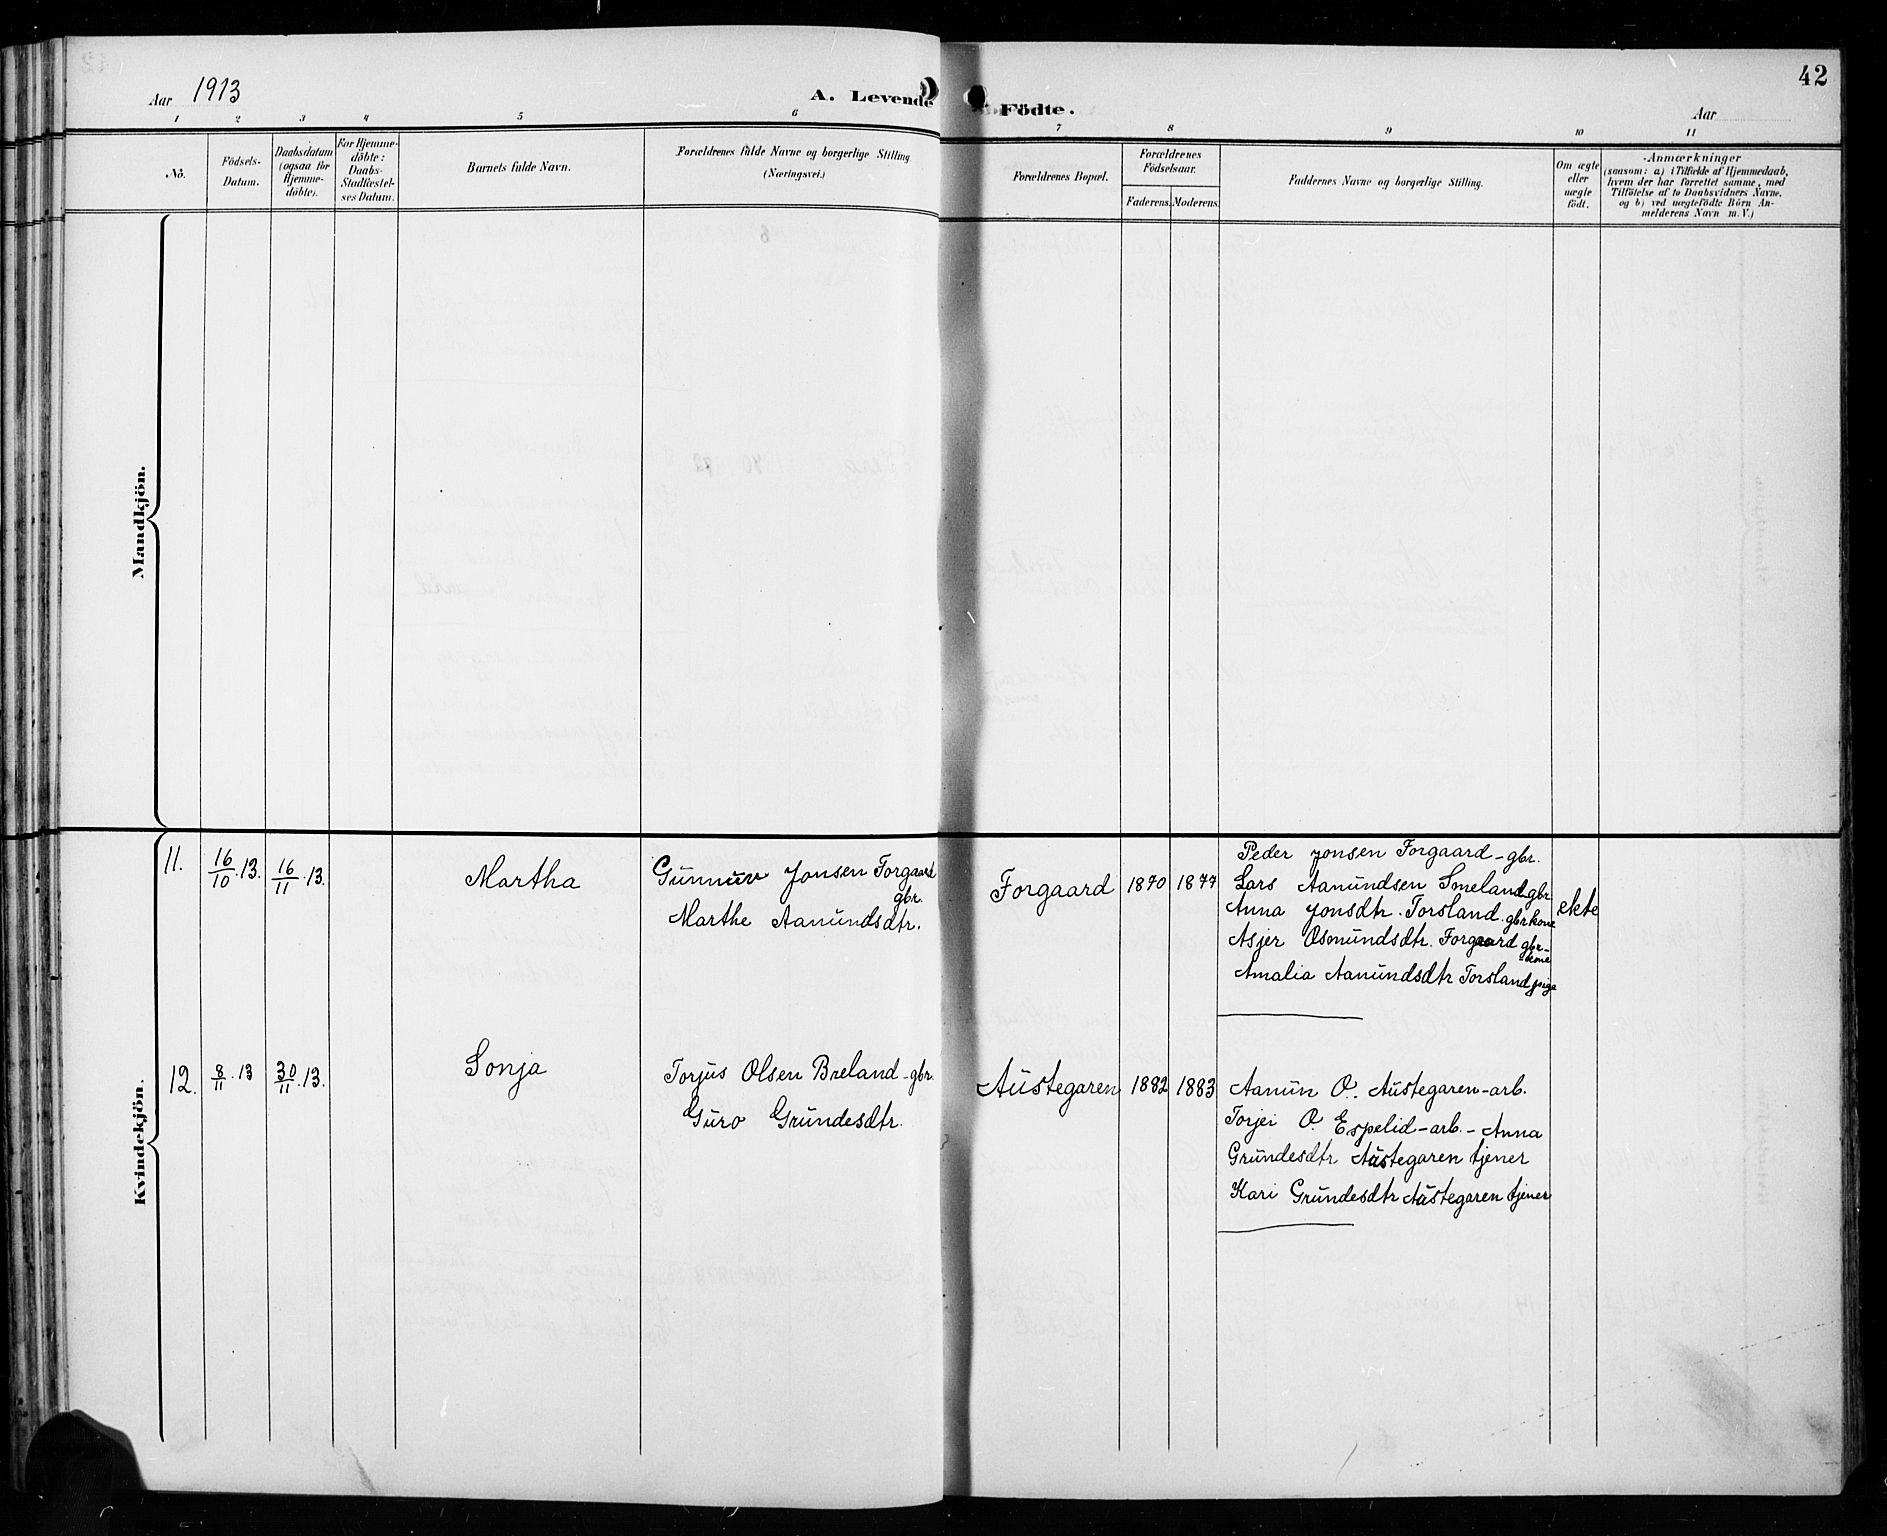 42
Aar 1913
A. Levende Födte.
Aar
1 2 3 4 5 6 7 8 9 10 11
No.
Födsels-Datum.
Daabsdatum (ogsaa for Hjemme-döbte).
For Hjemme-döbte: Daabs-Stadfæstel-ses Datum.
Barnets fulde Navn.
Forældrenes fulde Navne og borgerlige Stilling (Næringsvei.)
Forældrenes Bopæl.
Forældrenes Födselsaar.
Faderens. Moderens.
Faddernes Navne og borgerlige Stilling.
Om ægte eller uægte födt.
Anmærkninger
(saasom: a) i Tilfælde af Hjemmedaab,
hvem der har forrettet samme, med
Tilföielse af to Daabsvidners Navne.
og b) ved uægtefödte Börn An-
melderens Navn m. V.)
Mandkjön.
Kvindekjön.
11. 16/10.13. 16/11.13. Martha
Gunnuv Jonsen Forgaard
gbr.
Marthe Aanundsdtr.
Forgaard 1870 1877
Peder Jonsen Forgaard - gbr.
Lars Aanundsen Smeland gbr
Anna Jonsdtr. Torsland. gbrkone
Asjer Osmundsdtr. Forgaard gbr-
kone
Amalia Aanundsdtr Torsland pige
ekte
12. 8/11.13 30/11.13. Sonja
Torjus Olsen Breland - gbr.
Guro Grundesdtr.
Austegaren 1882 1883
Aanun O. Austegaren - arb.
Torjei O. Espelid - arb. - Anna
Grundesdtr Austegaren tjener
Kari Grundesdtr Austegaren tjener